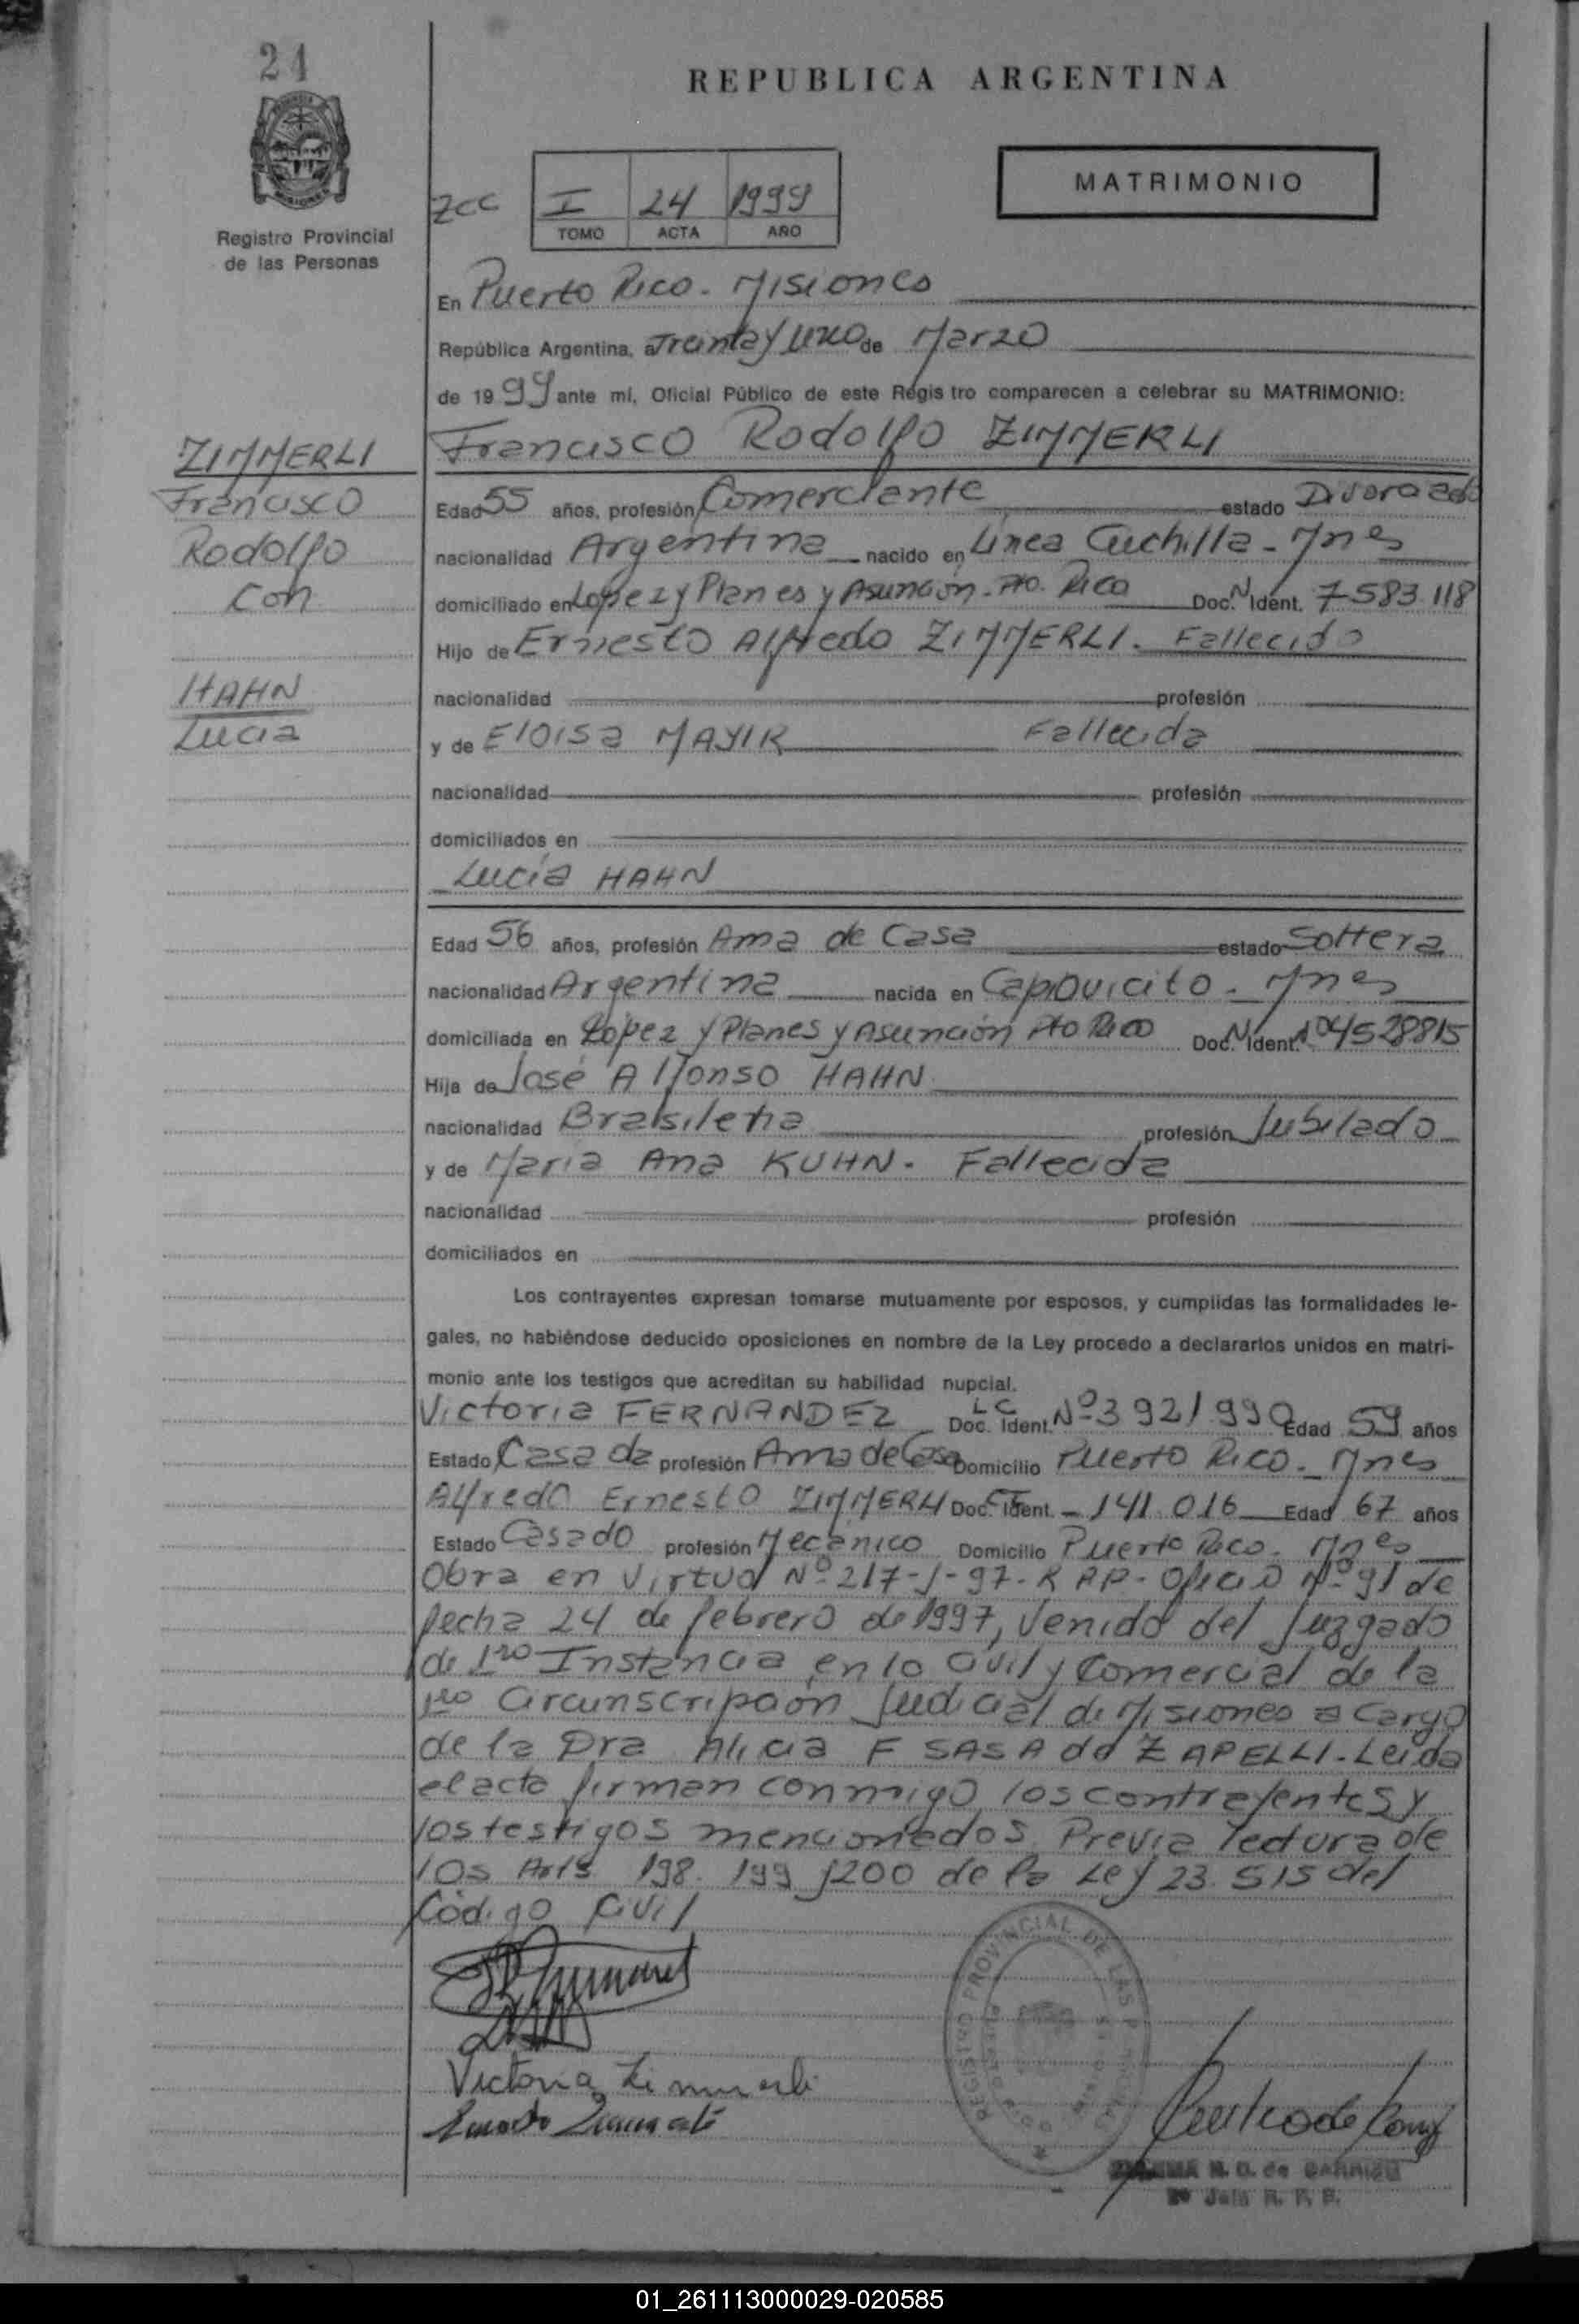 24
REPUBLICA ARGENTINA
MATRIMONIO
Registro Provincial
de las Personas
ZCC I 24 1999
TOMO ACTA AÑO
En Puerto Rico - Misiones
República Argentina, a Treinta y Uno de Marzo
de 1999 ante mi, Oficial Público de este Regis tro comparecen a celebrar su MATRIMONIO:
ZIMMERLI
Francisco
Rodolfo
Con
HAHN
Lucia
Francisco Rodolfo ZIMMERLI
Edad 55 años, profesión Comerciante estado Divorciado
nacionalidad Argentina nacido en Línea Cuchilla - Mnes
domiciliado en Lopez y Planes y Asunción - Pto. Rico Doc. N Ident. 7583.118
Hijo de Ernesto Alfredo ZIMMERLI. Fallecido
nacionalidad profesión
y de Eloisa MAYIR Fallecida
nacionalidad profesión
domiciliados en
Lucía HAHN
Edad 56 años, profesión Ama de Casa estado Soltera
nacionalidad Argentina nacida en Capiovicito - Mnes
domiciliada en López y Planes y Asunción Pto Rico Doc. N Ident. 4528815
Hija de José Alfonso HAHN
nacionalidad Brasileña profesión Jubilado
y de María Ana KUHN - Fallecida
nacionalidad profesión
domiciliados en
Los contrayentes expresan tomarse mutuamente por esposos, y cumplidas las formalidades le-
gales, no habiéndose deducido oposiciones en nombre de la Ley procedo a declararlos unidos en matri-
monio ante los testigos que acreditan su habilidad nupcial.
Victoria FERNANDEZ Doc. LC Ident. Nº 3.921.990 Edad 59 años
Estado Casada profesión Ama de Casa Domicilio Puerto Rico - Mnes
Alfredo Ernesto ZIMMERLI Doc. Ident. - 141.016 Edad 67 años
Estado Casado profesión Mecánico Domicilio Puerto Rico - Mnes
Obra en Virtud Nº 217-J-97- R AP - Oficio Nº 91 de
fecha 24 de febrero de 1997, Venido del Juzgado
de 1ro Instancia en lo Civil y Comercial de la
1ro Circunscripción Judicial de Misiones a Cargo
de la Dra Alicia F SASA de ZAPELLI - Leída
el acta firman conmigo los contrayentes y
los testigos mencionados Previa lectura de
los Arts 198. 199 y 200 de la Ley 23.515 del
Código Civil
Victoria Zimmerli
Ernesto
REGISTRO PROVINCIAL DE LAS P
N. O. de
2º Jefa R. P. P.
01_261113000029-020585